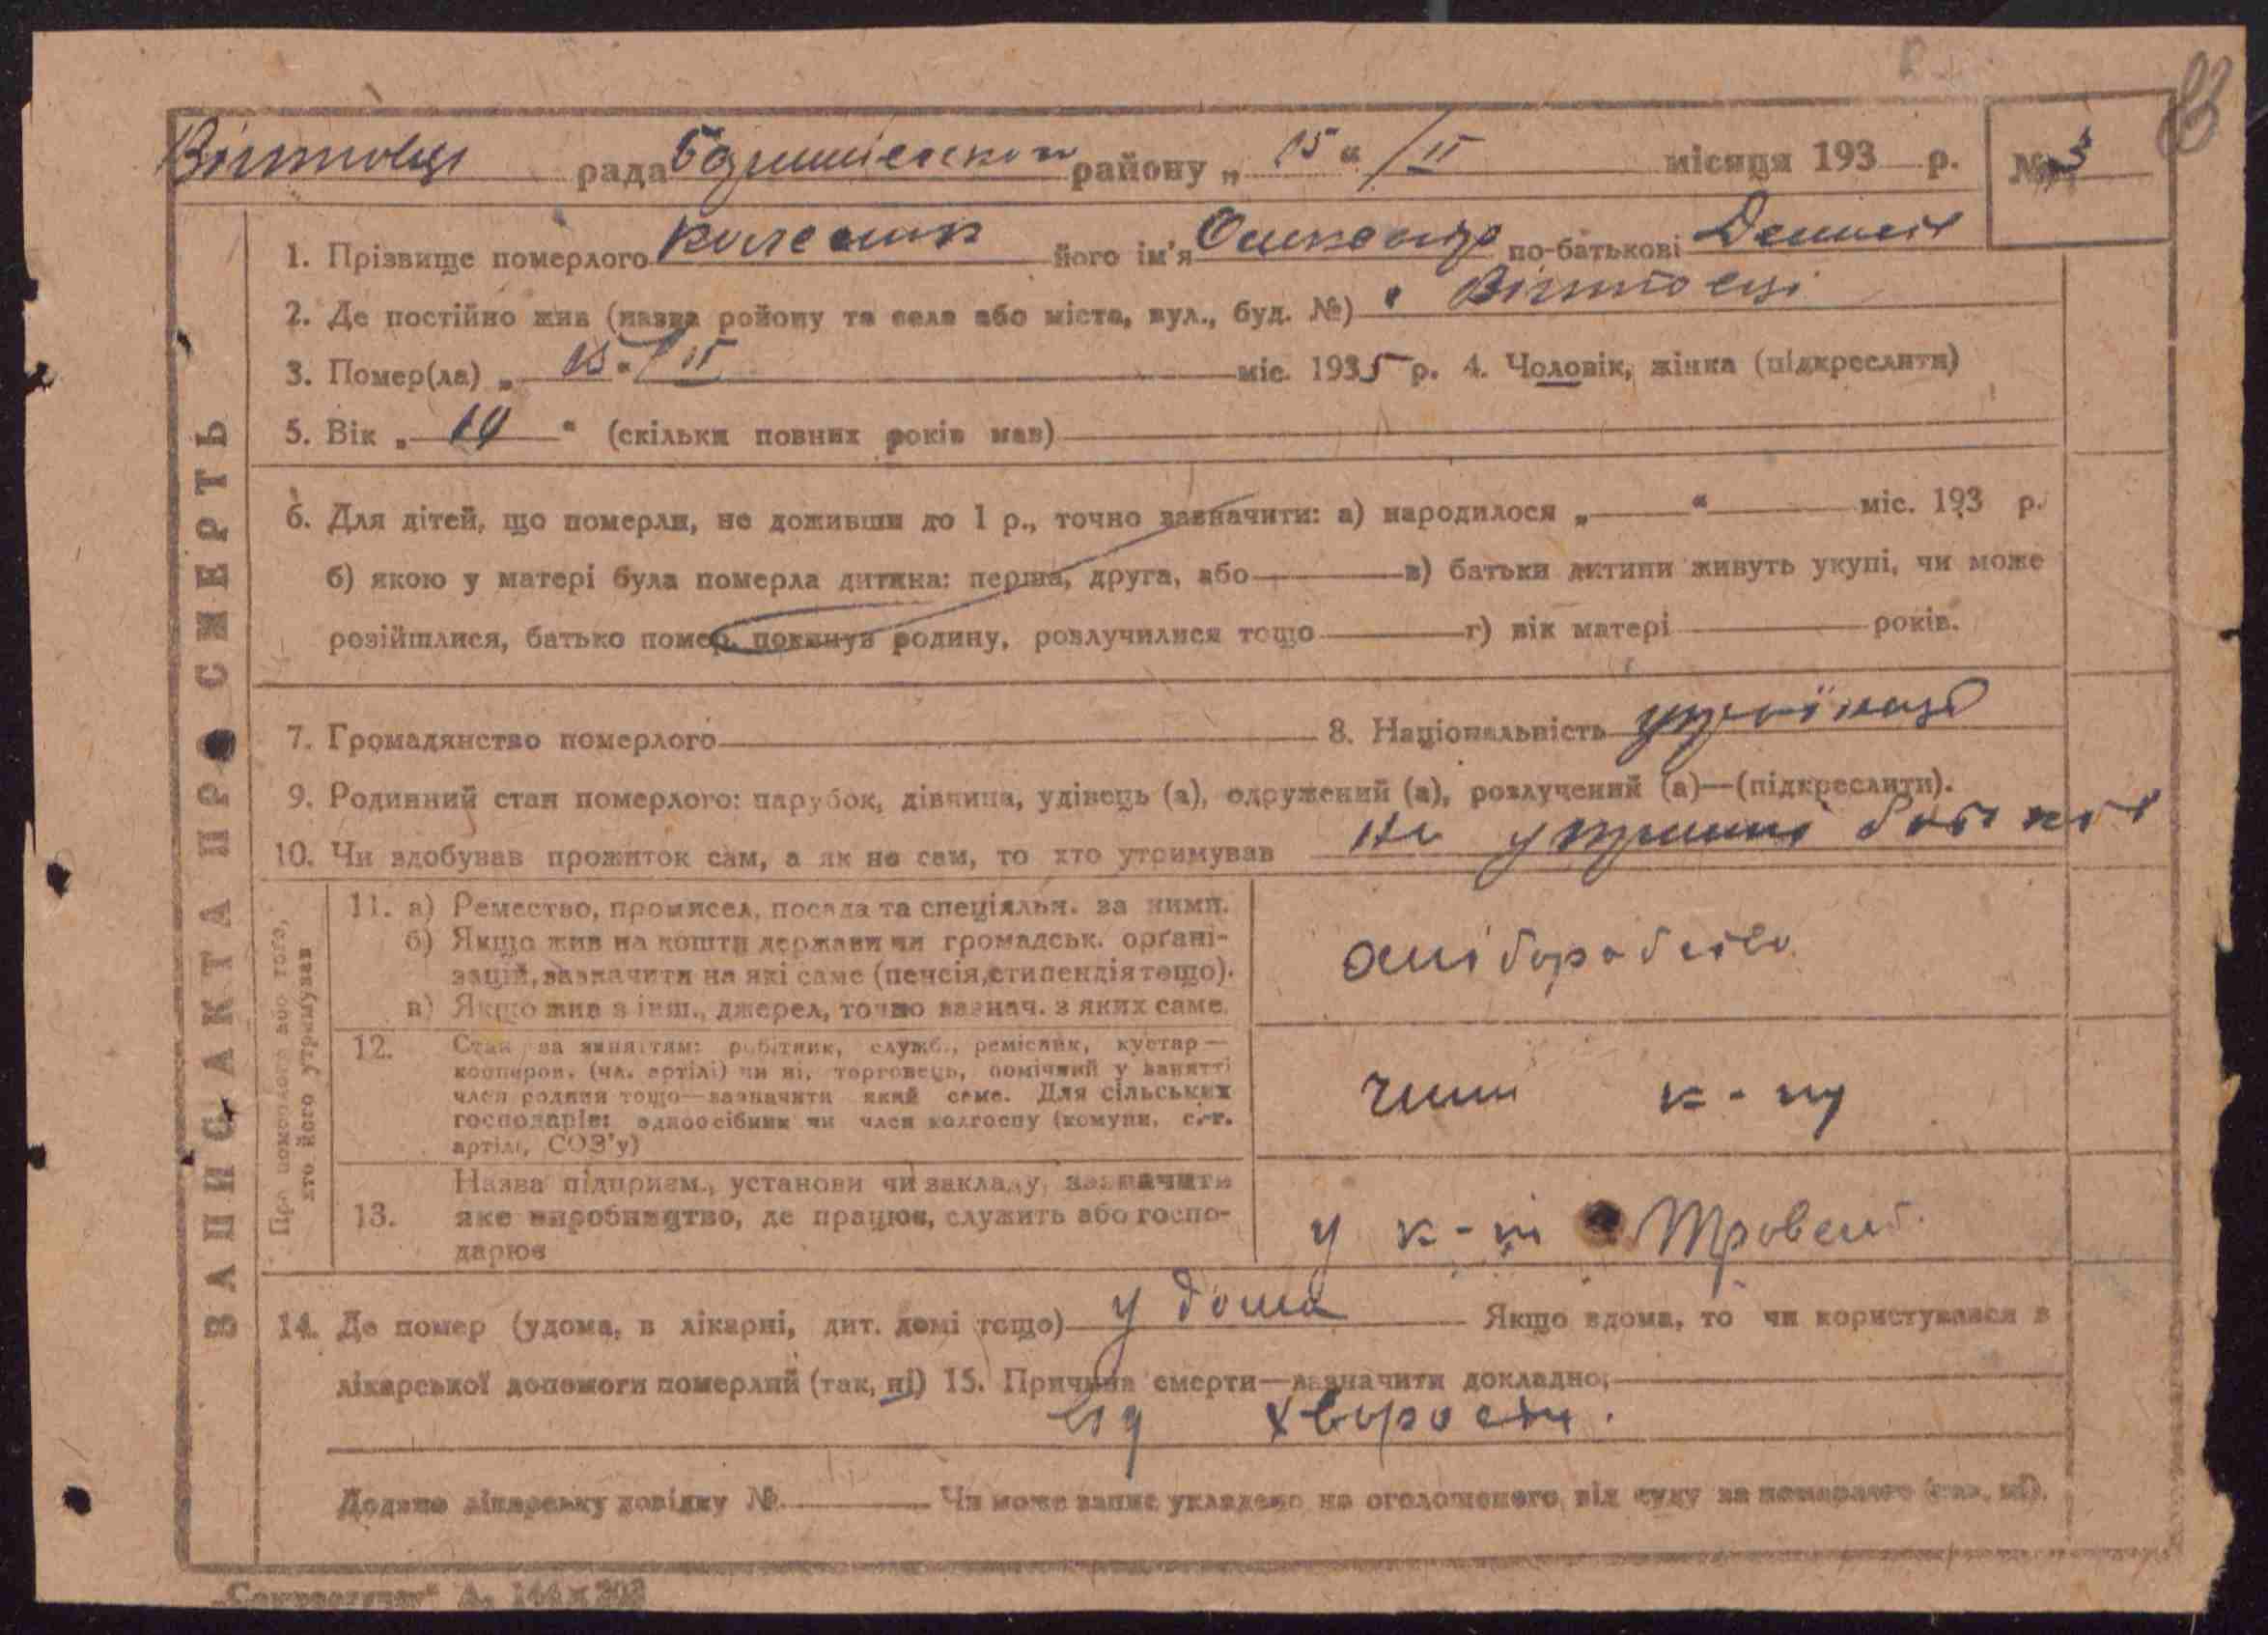 рада району „ 15 “ / II місяця 193 р. № 3
1. Прізвище померлого Колесник його ім'я Олександр по-батькові
2. Де постійно жив (назва району та села або міста, вул., буд. №)
3. Помер(ла) „ “ / II міс. 1935 р. 4. Чоловік, жінка (підкреслити)
5. Вік „ “ (скільки повних років мав)
6. Для дітей, що померли, не доживши до 1 р., точно зазначити: а) народилося „ “ міс. 193 р.
б) якою у матері була померла дитина: перша, друга, або в) батьки дитини живуть укупі, чи може
розійшлися, батько помер, покинув родину, розлучилися тощо г) вік матері років.
7. Громадянство померлого 8. Національність українец
9. Родинний стан померлого: парубок, дівчина, удівець (а), одружений (а), розлучений (а)—(підкреслити).
10. Чи здобував прожиток сам, а як не сам, то хто утримував на утримані батьків
11. а) Ремество, промисел, посада та спеціяльн. за ними.
б) Якщо жив на кошти держави чи громадськ. орґані-
зацій, зазначити на які саме (пенсія, стипендія тощо).
в) Якщо жив з інш., джерел, точно зазнач. з яких саме.
12. Стан за заняттям: робітник, служб., ремісник, кустар—
кооперов. (чл. артілі) чи ні, торговець, помічний у занятті
член родини тощо—зазначити який саме. Для сільських
господарів: одноосібник чи член колгоспу (комуни, с.-г.
артілі, СОЗ'у)
член к-пу
13. Назва підприєм., установи чи закладу, зазначити
яке виробництво, де працює, служить або госпо-
дарює
у к-пі
Про померлого або того,
хто його утримував
14. Де помер (удома, в лікарні, дит. домі тощо) у дома Якщо вдома, то чи користувався з
лікарської допомоги померлий (так, ні) 15. Причина смерти—зазначити докладно;
від хворости.
Додано лікарську довідку № Чи може запис укладено на оголошеного, від суду за померлого (так, ні).
ЗАПИС АКТА ПРО СМЕРТЬ